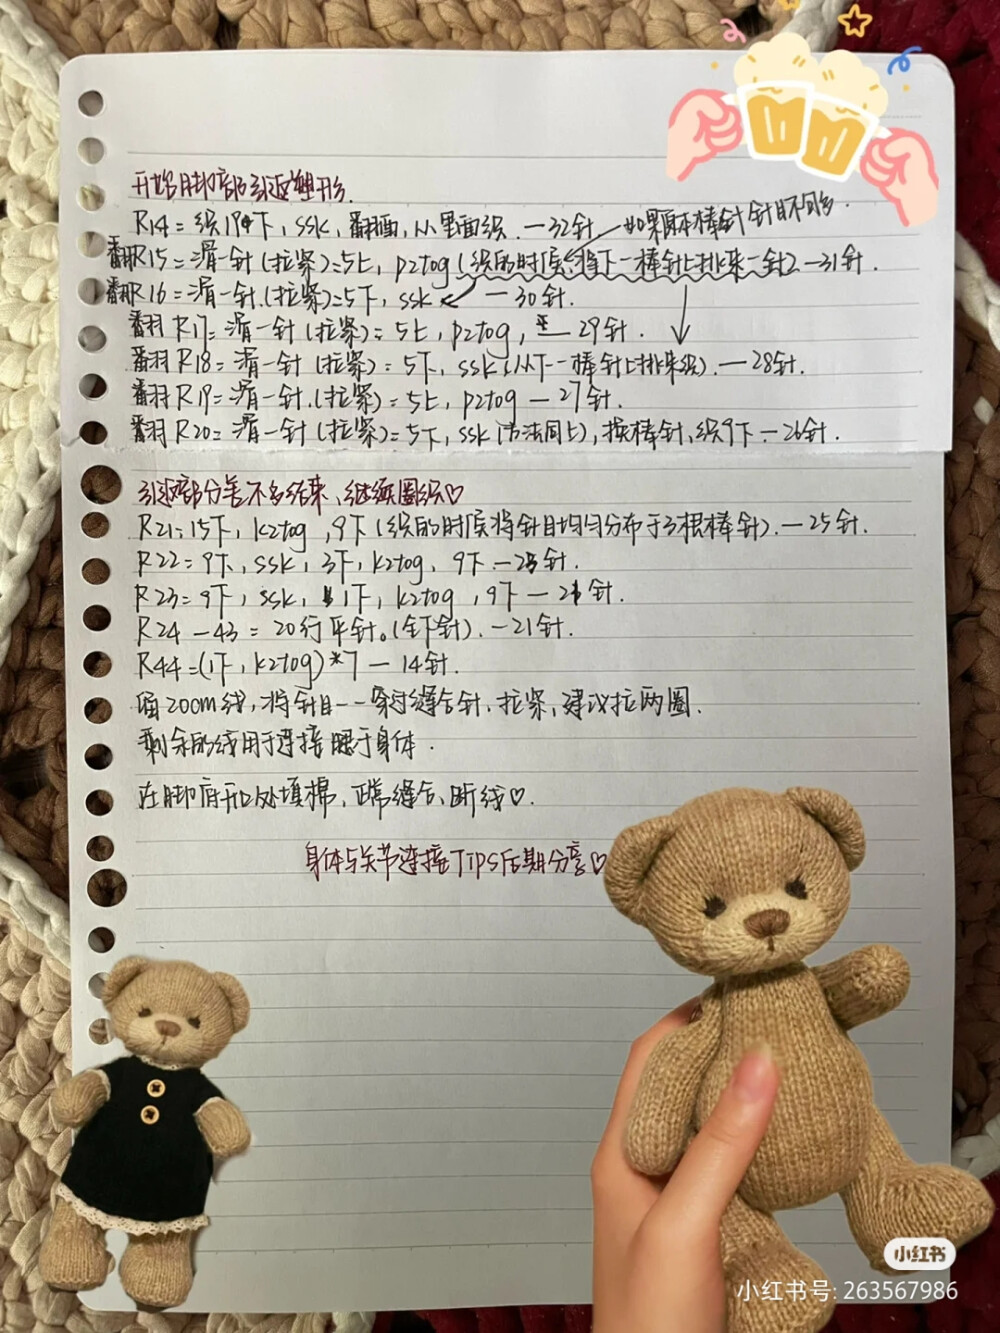 开始脚部引返塑形.
R14=织19下, ssk, 翻面, 从里面织. —32针 如果原本棒针针目不够.
翻R15=滑一针(拉紧)=5上, p2tog(织的时候将下一棒针上排来一针) —31针.
翻R16=滑一针.(拉紧)=5下, ssk —30针.
翻羽R17=滑一针(拉紧)=5上, p2tog, — 29针.
翻羽R18=滑一针(拉紧)=5下, ssk(从下一棒针上排来织). —28针.
翻羽R19=滑一针.(拉紧)=5上, p2tog — 27针.
翻羽R20=滑一针(拉紧)=5下, ssk(方法同上), 换棒针, 织9下 —26针.
引返部分差不多结束, 继续圈织♡
R21=15下, k2tog, 9下(织的时候将针目均匀分布于3根棒针). —25针.
R22=9下, ssk, 3下, k2tog, 9下 —23针.
R23=9下, ssk, 1下, k2tog, 9下 — 21针.
R24 —43 = 20行平针。(全下针). —21针.
R44=(1下, k2tog)*7 — 14针.
留20cm线, 将针目一一穿过缝合针, 拉紧, 建议拉两圈.
剩余的线用于连接腿于身体.
在脚肩开口处填棉, 正常缝合, 断线♡.
身体与关节连接TIPS后期分享♡
小红书
小红书号: 263567986